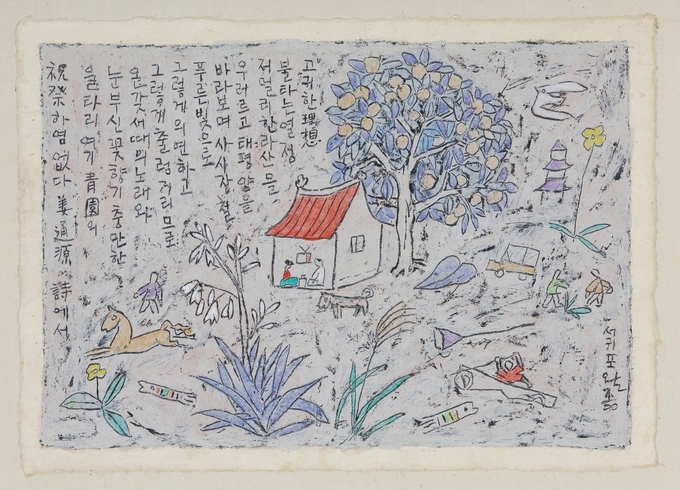 고귀한 理想
불타는 열정
저멀리 한라산을
우러르고 태평양을
바라보며 사시장철
푸른빛으로
그렇게 의연하고
그렇게 출렁거리므로
온갖 새떼의 노래와
눈부신 꽃향기 충만한
울타리 여기 青園의
祝祭 하염없다 姜通源의 詩에서
서귀포 왈종